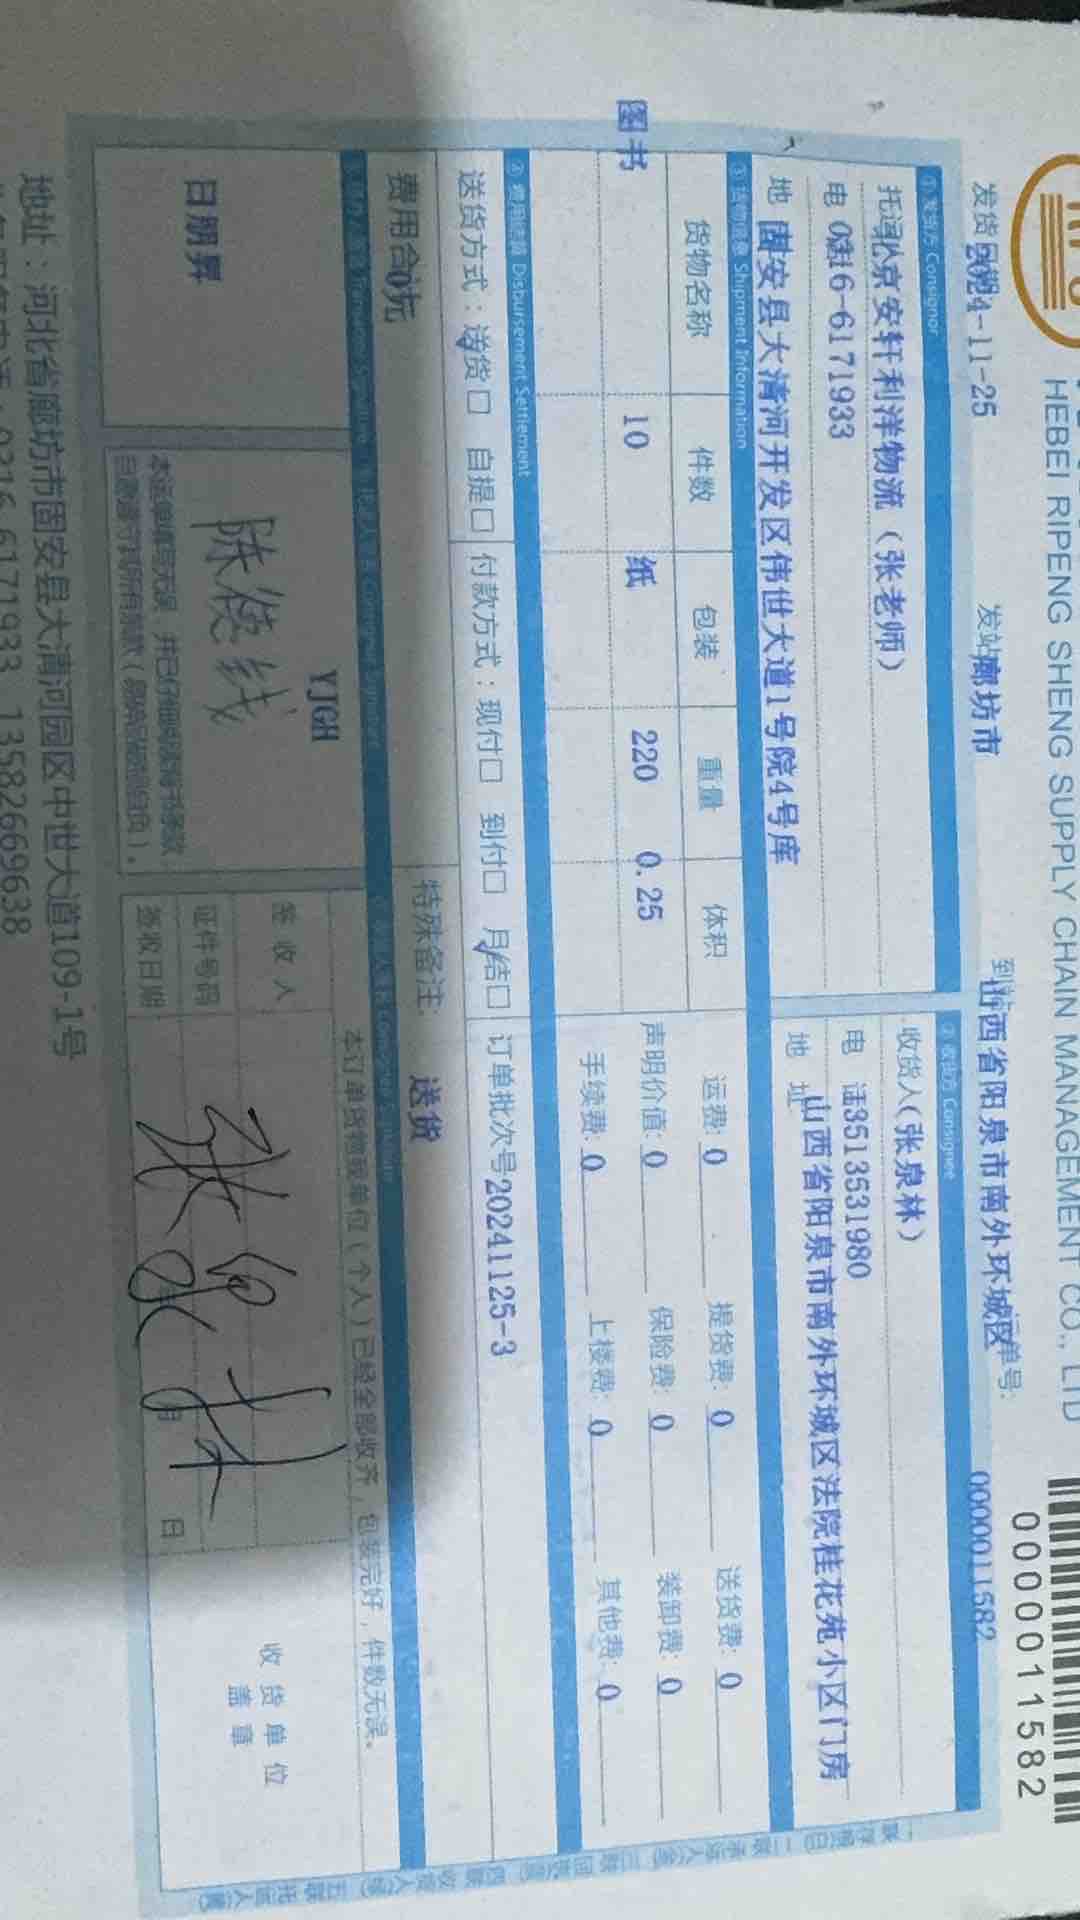 HEBEI RIPENG SHENG SUPPLY CHAIN MANAGEMENT CO., LTD
0000011582
发货日期 2024-11-25 发站 廊坊市 到站 山西省阳泉市南外环城区 运单号: 0000011582
①发货方 Consignor
②收货方 Consignee
托运人 北京安轩利洋物流（张老师） 收货人(张泉林)
电 话 0316-6171933 电 话 13513531980
地 址 固安县大清河开发区伟世大道1号院4号库 地 址 山西省阳泉市南外环城区法院桂花苑小区门房
③货物信息 Shipment Information
货物名称 件数 包装 重量 体积 运费: 0 提货费: 0 送货费: 0
图书 10 纸 220 0.25 声明价值: 0 保险费: 0 装卸费: 0
手续费: 0 上楼费: 0 其他费: 0
④费用结算 Disbursement Settlement
送货方式：送货□ 自提□ 付款方式：现付□ 到付□ 月结□ 订单批次号 20241125-3
费用合计 0元 特殊备注: 送货
YJGH
本订单货物我单位（个人）已经全部收齐，包装完好，件数无误。
日朋昇
签收人
证件号码
签收日期 月 日
收货单位
盖章
地址：河北省廊坊市固安县大清河园区中世大道109-1号
0316-6171933 13582669638